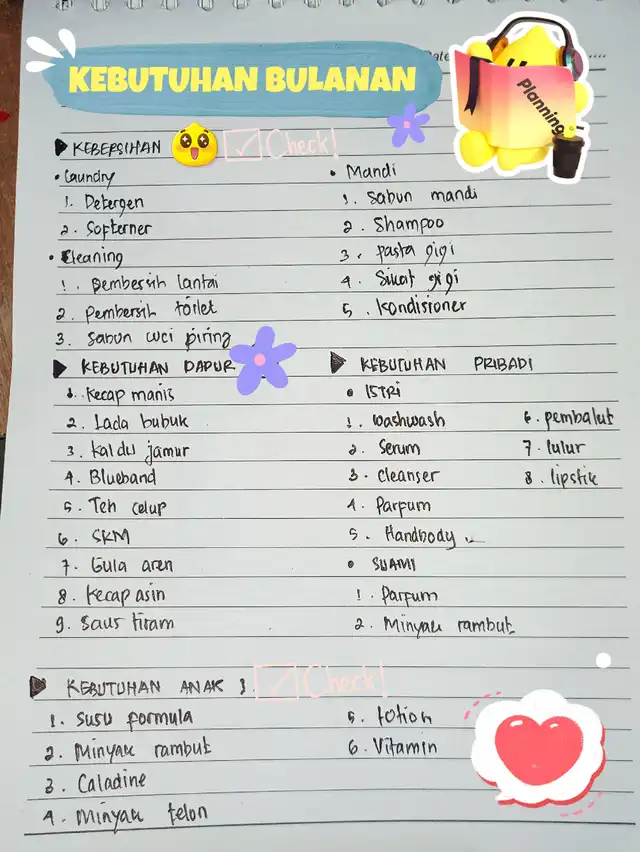 Date
KEBUTUHAN BULANAN
Planning
KEBERSIHAN
Check!
• Laundry
1. Detergen
2. Softerner
• Cleaning
1. Pembersih lantai
2. Pembersih toilet
3. Sabun cuci piring
• Mandi
1. Sabun mandi
2. Shampoo
3. Pasta gigi
4. Sikat gigi
5. Kondisioner
KEBUTUHAN DAPUR
1. Kecap manis
2. Lada bubuk
3. Kaldu jamur
4. Blueband
5. Teh celup
6. SKM
7. Gula aren
8. Kecap asin
9. Saus tiram
KEBUTUHAN PRIBADI
• ISTRI
1. Washwash
2. Serum
3. Cleanser
4. Parfum
5. Handbody
6. pembalut
7. lulur
8. lipstik
• SUAMI
1. Parfum
2. Minyak rambut
KEBUTUHAN ANAK
Check!
1. Susu formula
2. Minyak rambut
3. Caladine
4. Minyak telon
5. lotion
6. Vitamin